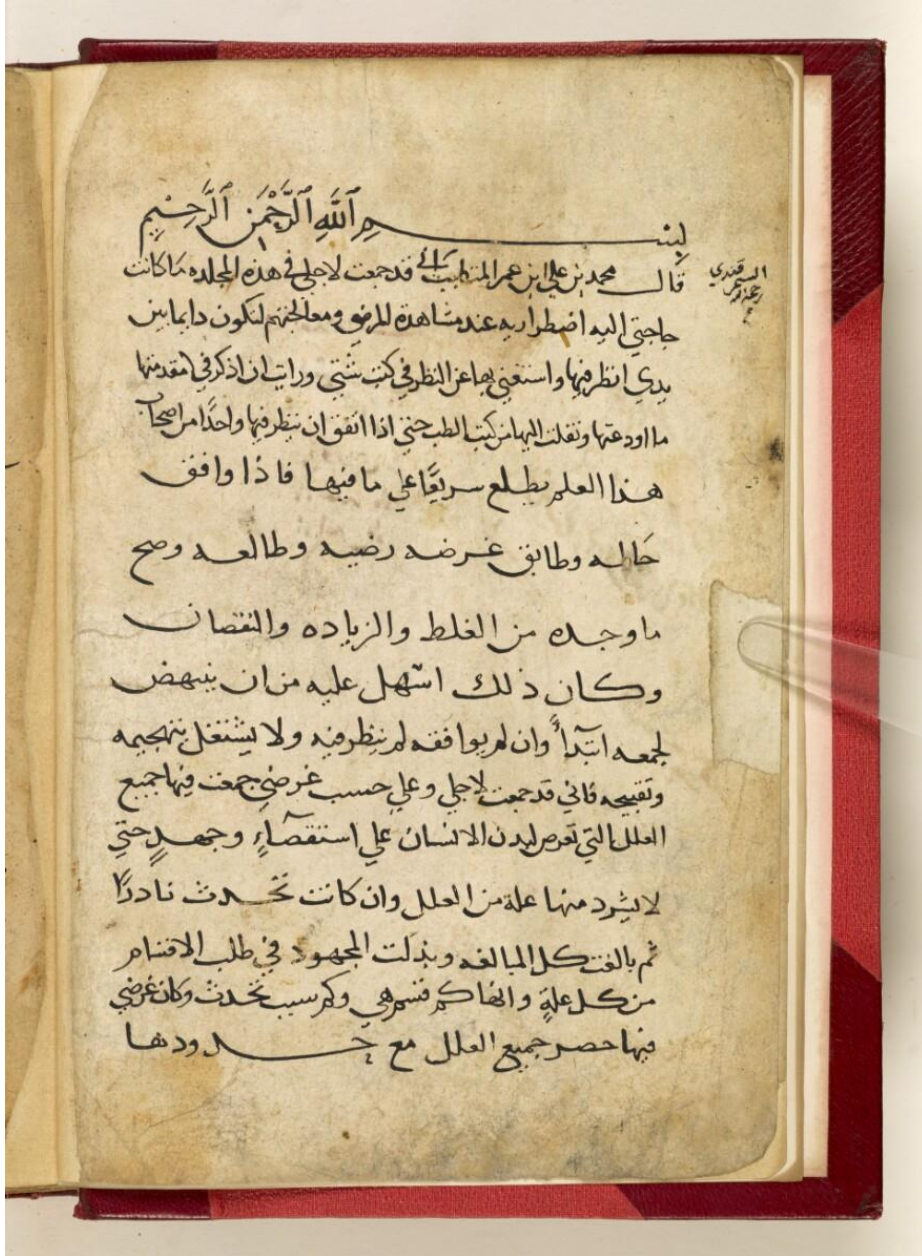 بِسْمِ ٱللَّهِ ٱلرَّحْمَنِ ٱلرَّحِيمِ
قال محمد بن علي ابن عمر المتطبب قد جمعت لاجلي في هذه المجلده ما كانت
السمرقندي
رحمه الله
حاجتي اليه اضطراريه عند مشاهدة المرضي ومعالجتهم لتكون دايما بين
يدي انظر فيها واستغني بها عن النظر في كتب شتي ورايت ان اذكر في مقدمتها
ما اودعتها ونقلت اليها من كتب الطب حتي اذا اتفق ان ينظر فيها واحدًا من اصحاب
هذا العلم يطلع سريعًا علي ما فيها فاذا وافق
حاله وطابق غرضه رضيه وطالعه وصح
ما وجده من الغلط والزياده والنقصان
وكان ذلك اسهل عليه من ان ينهض
لجمعه ابتدأً وان لم يوافقه لم ينظر فيه ولا يشتغل بتهجيمه
وتقبيحه فاني قد جمعت لاجلي وعلي حسب غرضي جمعت فيها جميع
العلل التي تعرض لبدن الانسان علي استقصاءٍ وجهدٍ حتي
لا يشرد منها علة من العلل وان كانت تحدث نادرًا
ثم بالغت كل المبالغه وبذلت المجهود في طلب الاقسام
من كل علةٍ وانها كم قسم هي وكم سبب تحدث وكان غرضي
فيها حصر جميع العلل مع حدودها